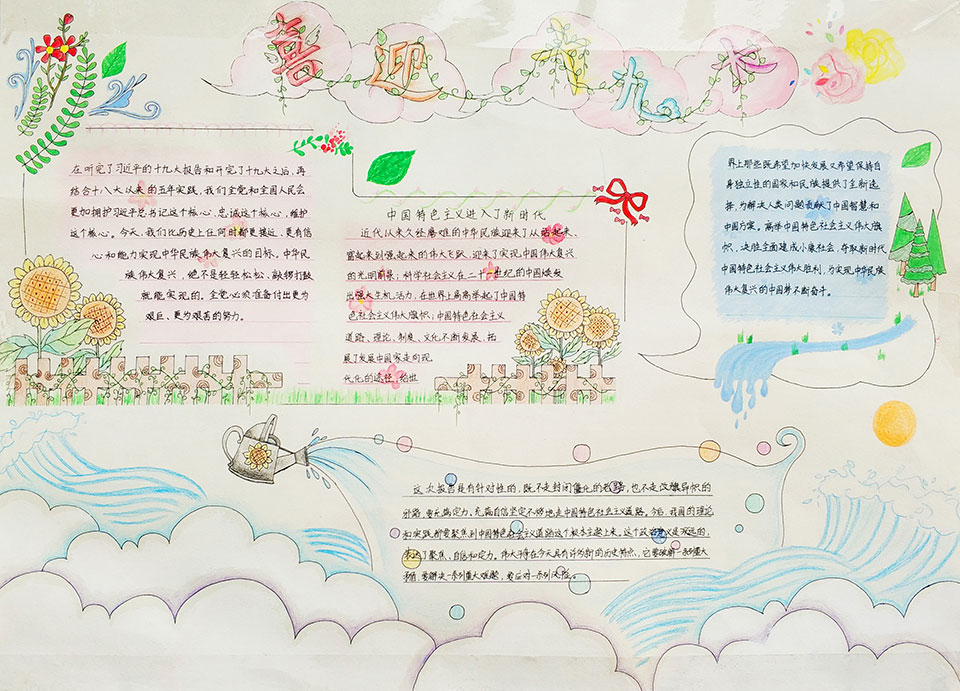 喜迎十九大
在听完了习近平的十九大报告和开完了十九大之后，再
结合十八大以来的五年实践，我们全党和全国人民会
更加拥护习近平总书记这个核心、忠诚这个核心、维护
这个核心。今天，我们比历史上任何时都更接近、更有信
心和能力实现中华民族伟大复兴的目标，中华民
族伟大复兴，绝不是轻轻松松、敲锣打鼓
就能实现的。全党必须准备付出更为
艰巨、更为艰苦的努力。
中国特色主义进入了新时代
近代以来久经磨难的中华民族迎来了从站起来、
富起来到强起来的伟大飞跃，迎来了实现中国伟大复兴
的光明前景；科学社会主义在二十一世纪的中国焕发
出强大生机活力，在世界上高高举起了中国特
色社会主义伟大旗帜；中国特色社会主义
道路、理论、制度、文化不断发展，拓
展了发展中国家走向现
代化的途径，给世
界上那些既希望加快发展又希望保持自
身独立性的国家和民族提供了全新选
择，为解决人类问题贡献了中国智慧和
中国方案。高举中国特色社会主义伟大旗
帜，决胜全面建成小康社会，夺取新时代
中国特色社会主义伟大胜利，为实现中华民族
伟大复兴的中国梦不断奋斗。
这次报告是有针对性的，既不走封闭僵化的老路，也不走改旗易帜的
邪路，要充满定力、充满自信坚定不移地走中国特色社会主义道路。今后，我国的理论
和实践都要聚焦到中国特色社会主义道路这个根本主题上来，这个政治意义是深远的，
表达了聚焦、自信和定力。伟大斗争在今天具有许多新的历史特点，它要破解一系列重大
矛盾，要解决一系列重大难题，要应对一系列风险。